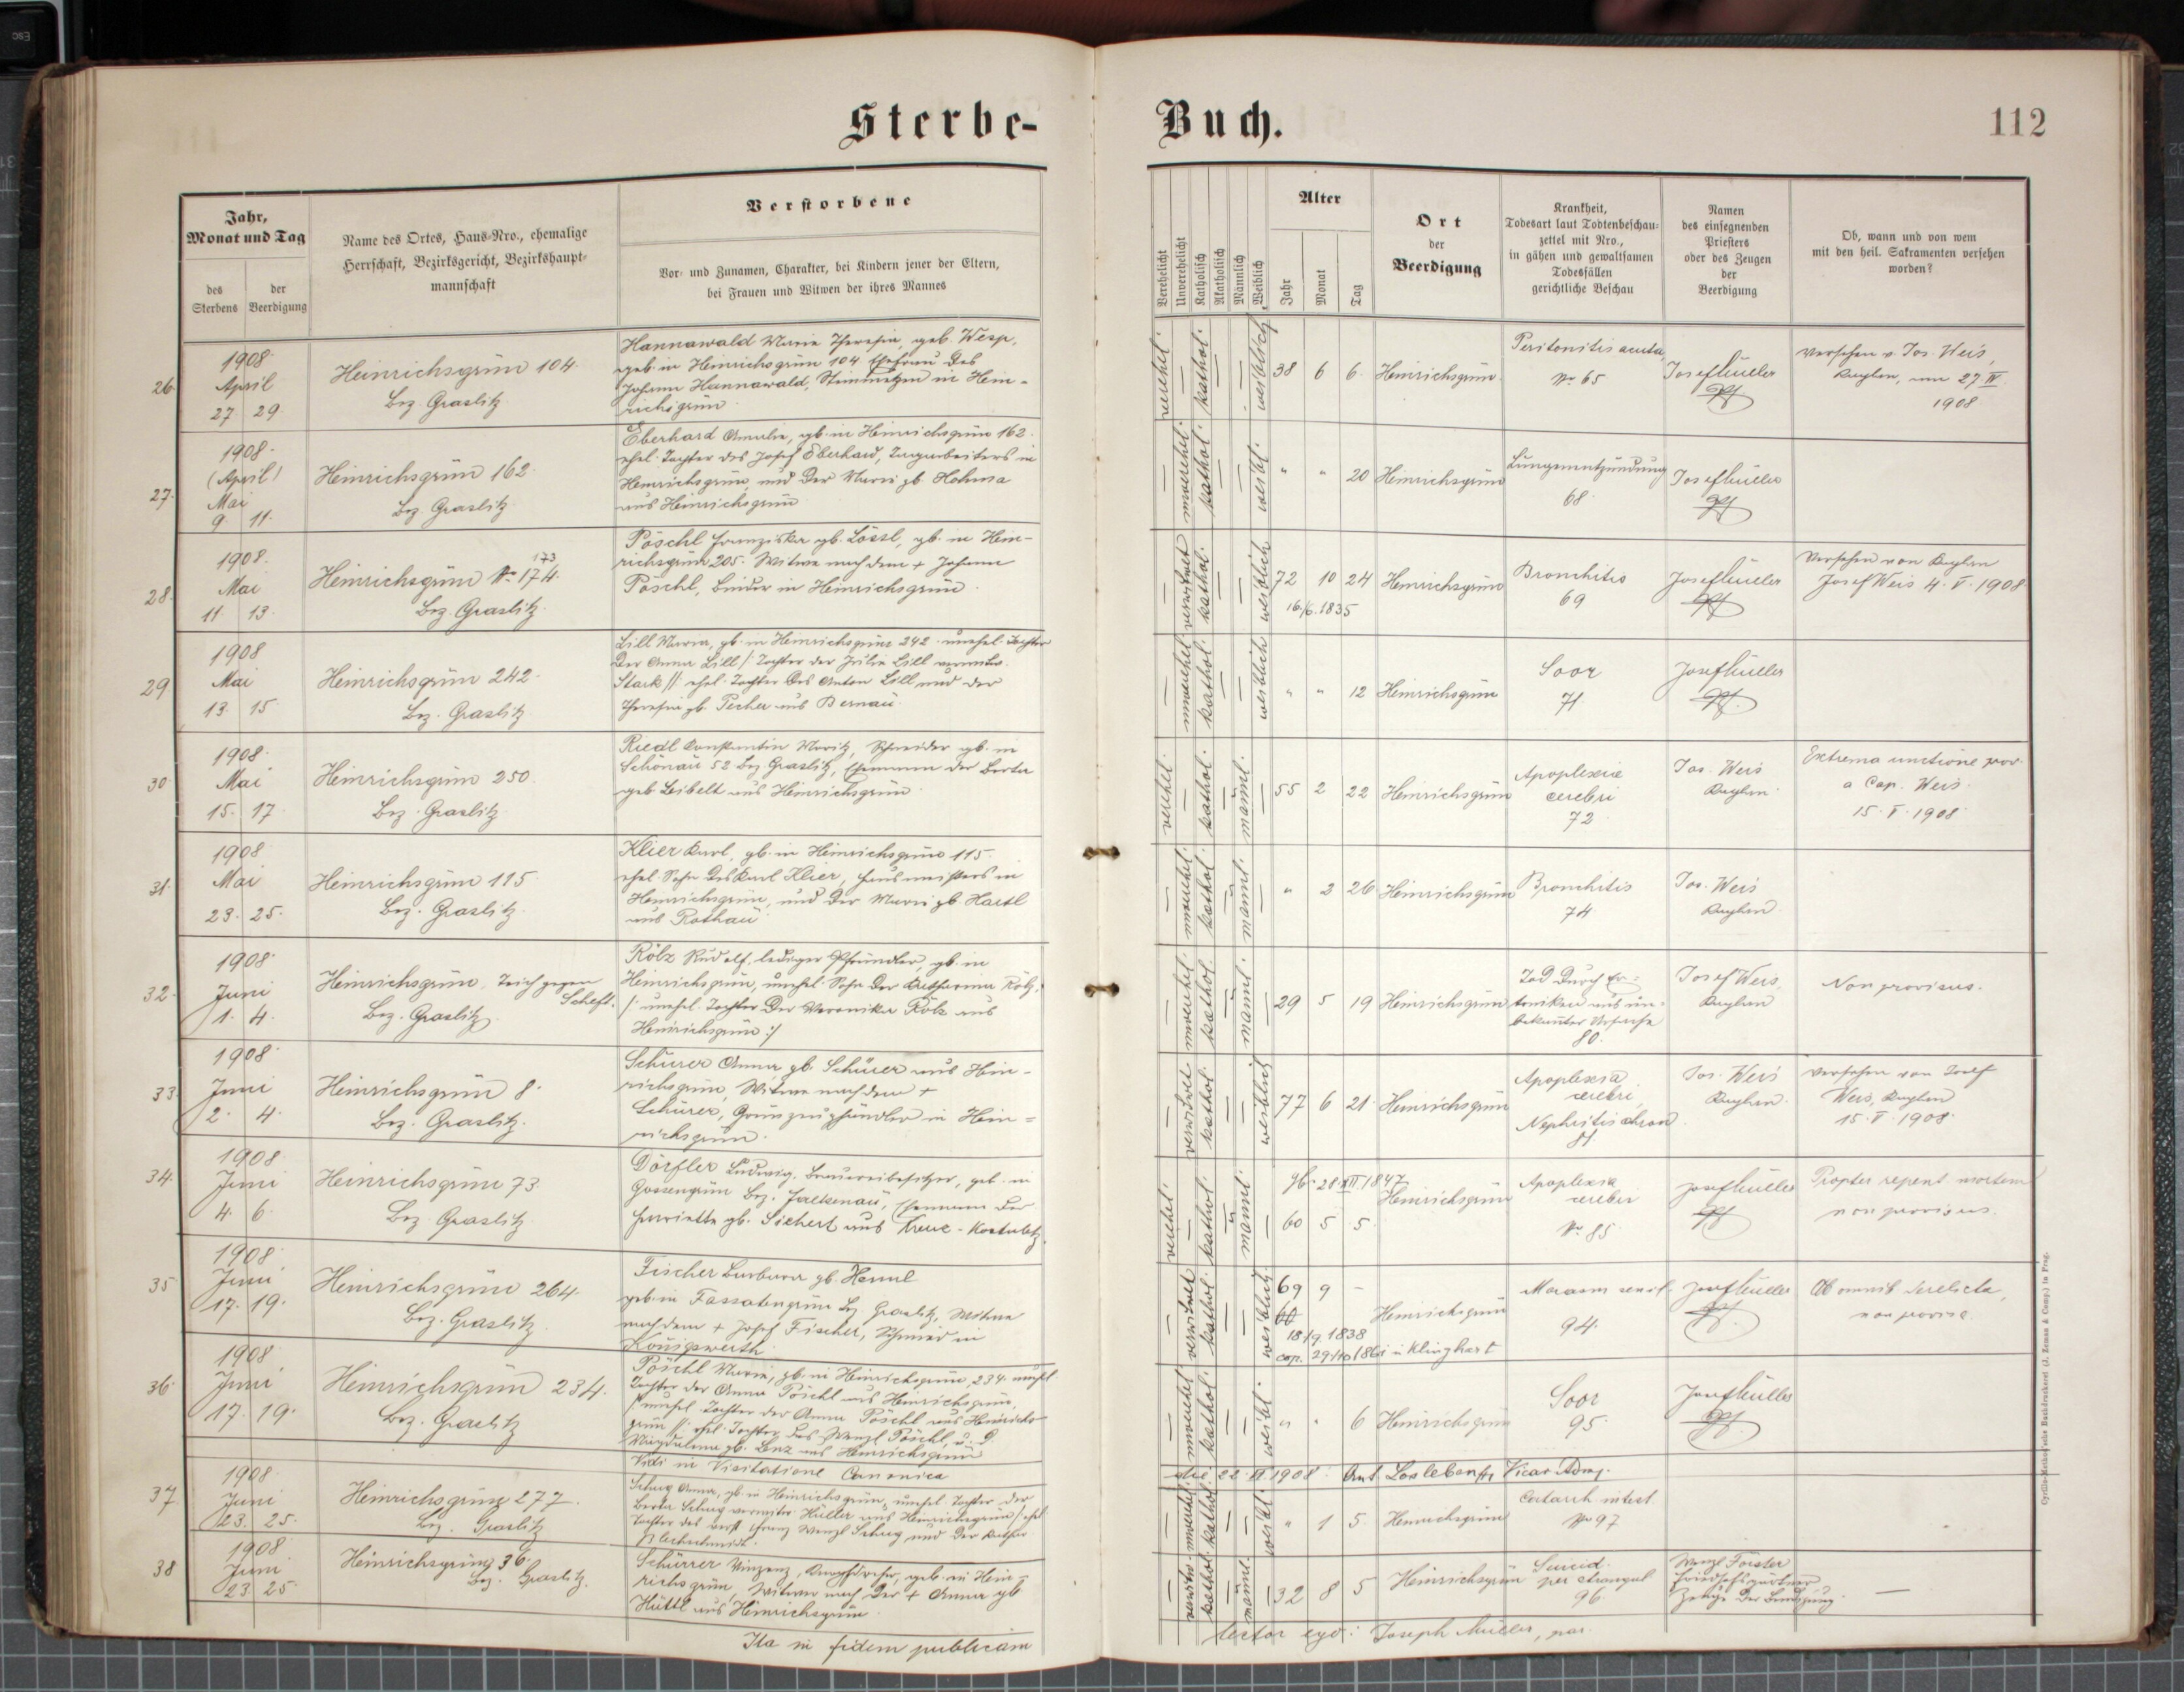 Sterbe-
Buch.
112
Jahr,
Monat und Tag
des
Sterbens
der
Beerdigung
Name des Ortes, Haus-Nro., ehemalige
Herrschaft, Bezirksgericht, Bezirkshaupt-
mannschaft
Verstorbene
Vor- und Zunamen, Charakter, bei Kindern jener der Eltern,
bei Frauen und Witwen der ihres Mannes
Verehelicht
Unverehelicht
Katholisch
Akatholisch
Männlich
Weiblich
Alter
Jahr
Monat
Tag
Ort
der
Beerdigung
Krankheit,
Todesart laut Todtenbeschau-
zettel mit Nro.,
in gähen und gewaltsamen
Todesfällen
gerichtliche Beschau
Namen
des einsegnenden
Priesters
oder des Zeugen
der
Beerdigung
Ob, wann und von wem
mit den heil. Sakramenten versehen
worden?
26.
1908
April
27 29
Heinrichsgrün 104.
Bez. Graslitz
Hannawald Maria Theresia, geb. Wesp,
geb. in Heinrichsgrün 104 Ehefrau des
Johann Hannawald, Steinmetzen in Hein-
richsgrün
verehel. kathol. weiblich
38 6 6 Heinrichsgrün
Peritonitis acuta
No 65
Josef Müller
Versehen v. Jos. Weis,
Kaplan, am 27. IV.
1908
27.
1908
(April)
Mai
9. 11.
Heinrichsgrün 162
Bez. Graslitz
Eberhard Amalia, gb. in Heinrichsgrün 162.
ehel. Tochter des Josef Eberhard, Tagarbeiters in
Heinrichsgrün, und der Marie gb.
aus Heinrichsgrün
unverehel. kathol. weibl.
" " 20 Heinrichsgrün
Lungenentzündung
68.
Josef Müller
28.
1908.
Mai
11 13.
Heinrichsgrün No 174.
173
Bez. Graslitz.
Pöschl Franziska gb. Lössl, gb. in Hein-
richsgrün 205. Witwe nach dem + Johann
Pöschl, Binder in Heinrichsgrün.
verwitwet kathol. weiblich
72 10 24 Heinrichsgrün
16./6. 1835
Bronchitis
69
Josef Müller
Versehen von Kaplan
Josef Weis 4. V. 1908
29
1908
Mai
13. 15
Heinrichsgrün 242.
Bez. Graslitz.
Lill Maria, gb. in Heinrichsgrün 242. unehel. Tochter
der Anna Lill /: Tochter der Julie Lill verwitw.
Stark /: ehel. Tochter des Anton Lill und der
Theresia gb. Pecher aus Bernau.
unverehel. kathol. weiblich
" " 12 Heinrichsgrün
Soor
71.
Josef Müller
30
1908.
Mai
15. 17
Heinrichsgrün 250.
Bez. Graslitz
Riedl Konstantin Moritz, Schneider gb. in
Schönau 52 Bez. Graslitz, Ehemann der Berta
geb. Leibelt aus Heinrichsgrün
verehel. kathol. männl.
55 2 22 Heinrichsgrün
Apoplexia
cerebri
72
Jos. Weis
Kaplan
Extrema unctione prov.
a Cap. Weis
15. V. 1908.
31.
1908
Mai
23. 25.
Heinrichsgrün 115.
Bez. Graslitz
Klier Karl, gb. in Heinrichsgrün 115.
ehel. Sohn des Karl Klier, Hausmeisters in
Heinrichsgrün, und der Marie gb. Hartl
aus Rothau
unverehel. kathol. männl.
" 2 26 Heinrichsgrün
Bronchitis
74
Jos. Weis
Kaplan
32.
1908.
Juni
1. 4.
Heinrichsgrün, Teich gegen
Scheft.
Bez. Graslitz
Rölz Rudolf, lediger Pfründler, gb. in
Heinrichsgrün, unehel. Sohn der Katharina Rölz.
/: unehel. Tochter der Veronika Rölz aus
Heinrichsgrün :/
unverehel. kathol. männl.
29 5 19 Heinrichsgrün
Tod durch Er-
trinken aus un-
bekannter Ursache
80.
Josef Weis,
Kaplan
Non provisus.
33.
1908.
Juni
2. 4.
Heinrichsgrün 8.
Bez. Graslitz.
Schürer Anna gb. Schürer aus Hein-
richsgrün, Witwe nach dem +
Schürer, Grünzeughändler in Hein-
richsgrün.
verwitwet kathol. weiblich
77 6 21 Heinrichsgrün
Apoplexia
cerebri,
Nephritis chron.
81
Jos. Weis
Kaplan.
versehen von Josef
Weis, Kaplan
15. V. 1908.
34.
1908.
Juni
4. 6.
Heinrichsgrün 73.
Bez. Graslitz
Dörfler Ludwig, Brauereibesitzer, geb. in
Gossengrün Bez. Falkenau, Ehemann der
Henriette gb. Sichert aus
verehel. kathol. männl.
gb. 28 XII 1847
60 5 5 Heinrichsgrün
Apoplexia
cerebri
No 85
Josef Müller
Propter repent. mortem
non provisus.
35
1908.
Juni
17. 19.
Heinrichsgrün 264.
Bez. Graslitz
Fischer Barbara gb. Heml
geb. in Fassatengrün Bez. Graslitz, Witwe
nach dem + Josef Fischer, Schmied in
Königswerth
verwitwet kathol. weiblich
69 9 –
18/9 1838
cop. 29/10 1861 in Klinghart
Heinrichsgrün
Marasm. senil.
94.
Josef Müller
Ab omnib. derelicta,
non provisa
36.
1908
Juni
17. 19.
Heinrichsgrün 234.
Bez. Graslitz
Pöschl Maria, gb. in Heinrichsgrün 234. unehel.
Tochter der Anna Pöschl aus Heinrichsgrün,
/: unehel. Tochter der Anna Pöschl aus Heinrichs-
grün /: ehel. Tochter des Wenzl Pöschl u. d.
Magdalena gb. Lenz aus Heinrichsgrün
unverehel. kathol. weibl.
" " 6 Heinrichsgrün
Soor
95.
Josef Müller
Vidi in Visitatione Canonica
die 22. VI. 1908: Ant. Vicar. Adm.
37.
1908
Juni
23. 25.
Heinrichsgrün 277.
Bez. Graslitz
Schug Anna, gb. in Heinrichsgrün, unehel. Tochter der
Berta Schug verwitw. Hüller aus Heinrichsgrün /: ehel.
Tochter des verst. Franz Wenzl Schug und der Kathar.
Blechschmidt.
unverehel. kathol. weibl.
" 1 5. Heinrichsgrün
Catarrh intest.
No 97
38
1908
Juni
23 25.
Heinrichsgrün 36.
Bez. Graslitz.
Schürrer Vinzenz, geb. in Hein-
richsgrün, Witwer nach der + Anna gb.
Hüttl aus Heinrichsgrün
verwitw. kathol. männl.
32 8 5 Heinrichsgrün
Suicid.
per strangul.
96
Wenzl Förster
Friedhofsgärtner
Zeuge der Beerdigung.
—
Ita in fidem publicam
testor ego: Joseph Müller, par.
Cyrillo-Method'sche Buchdruckerei (J. Zeman & Comp.) in Prag.
Esc